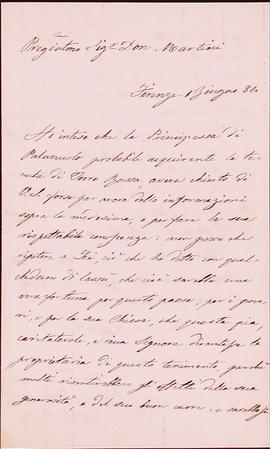 Pregiatmo Sigr Don Martini
Firenze 1 Giugno 81.
Ho inteso che la Principessa di
probabile acquirente la te-
nuta di Torre Bossa aveva chiesto di
V.S. forse per avere delle informazioni
sopra la medesima, e per fare la sua
rispettabile conoscenza: non posso che
ripetere a Lei, ciò che ho detto con qual-
cheduno di lassù, che cioè sarebbe una
vera fortuna per questo paese, per i pove-
ri, e per la sua Chiesa, che questa pia,
caritatevole, e ricca Signora diventasse la
proprietaria di questo tenimento, perchè
molti risentirebbero gli effetti della sua
generosità, e del suo buon cuore, e sarebbe